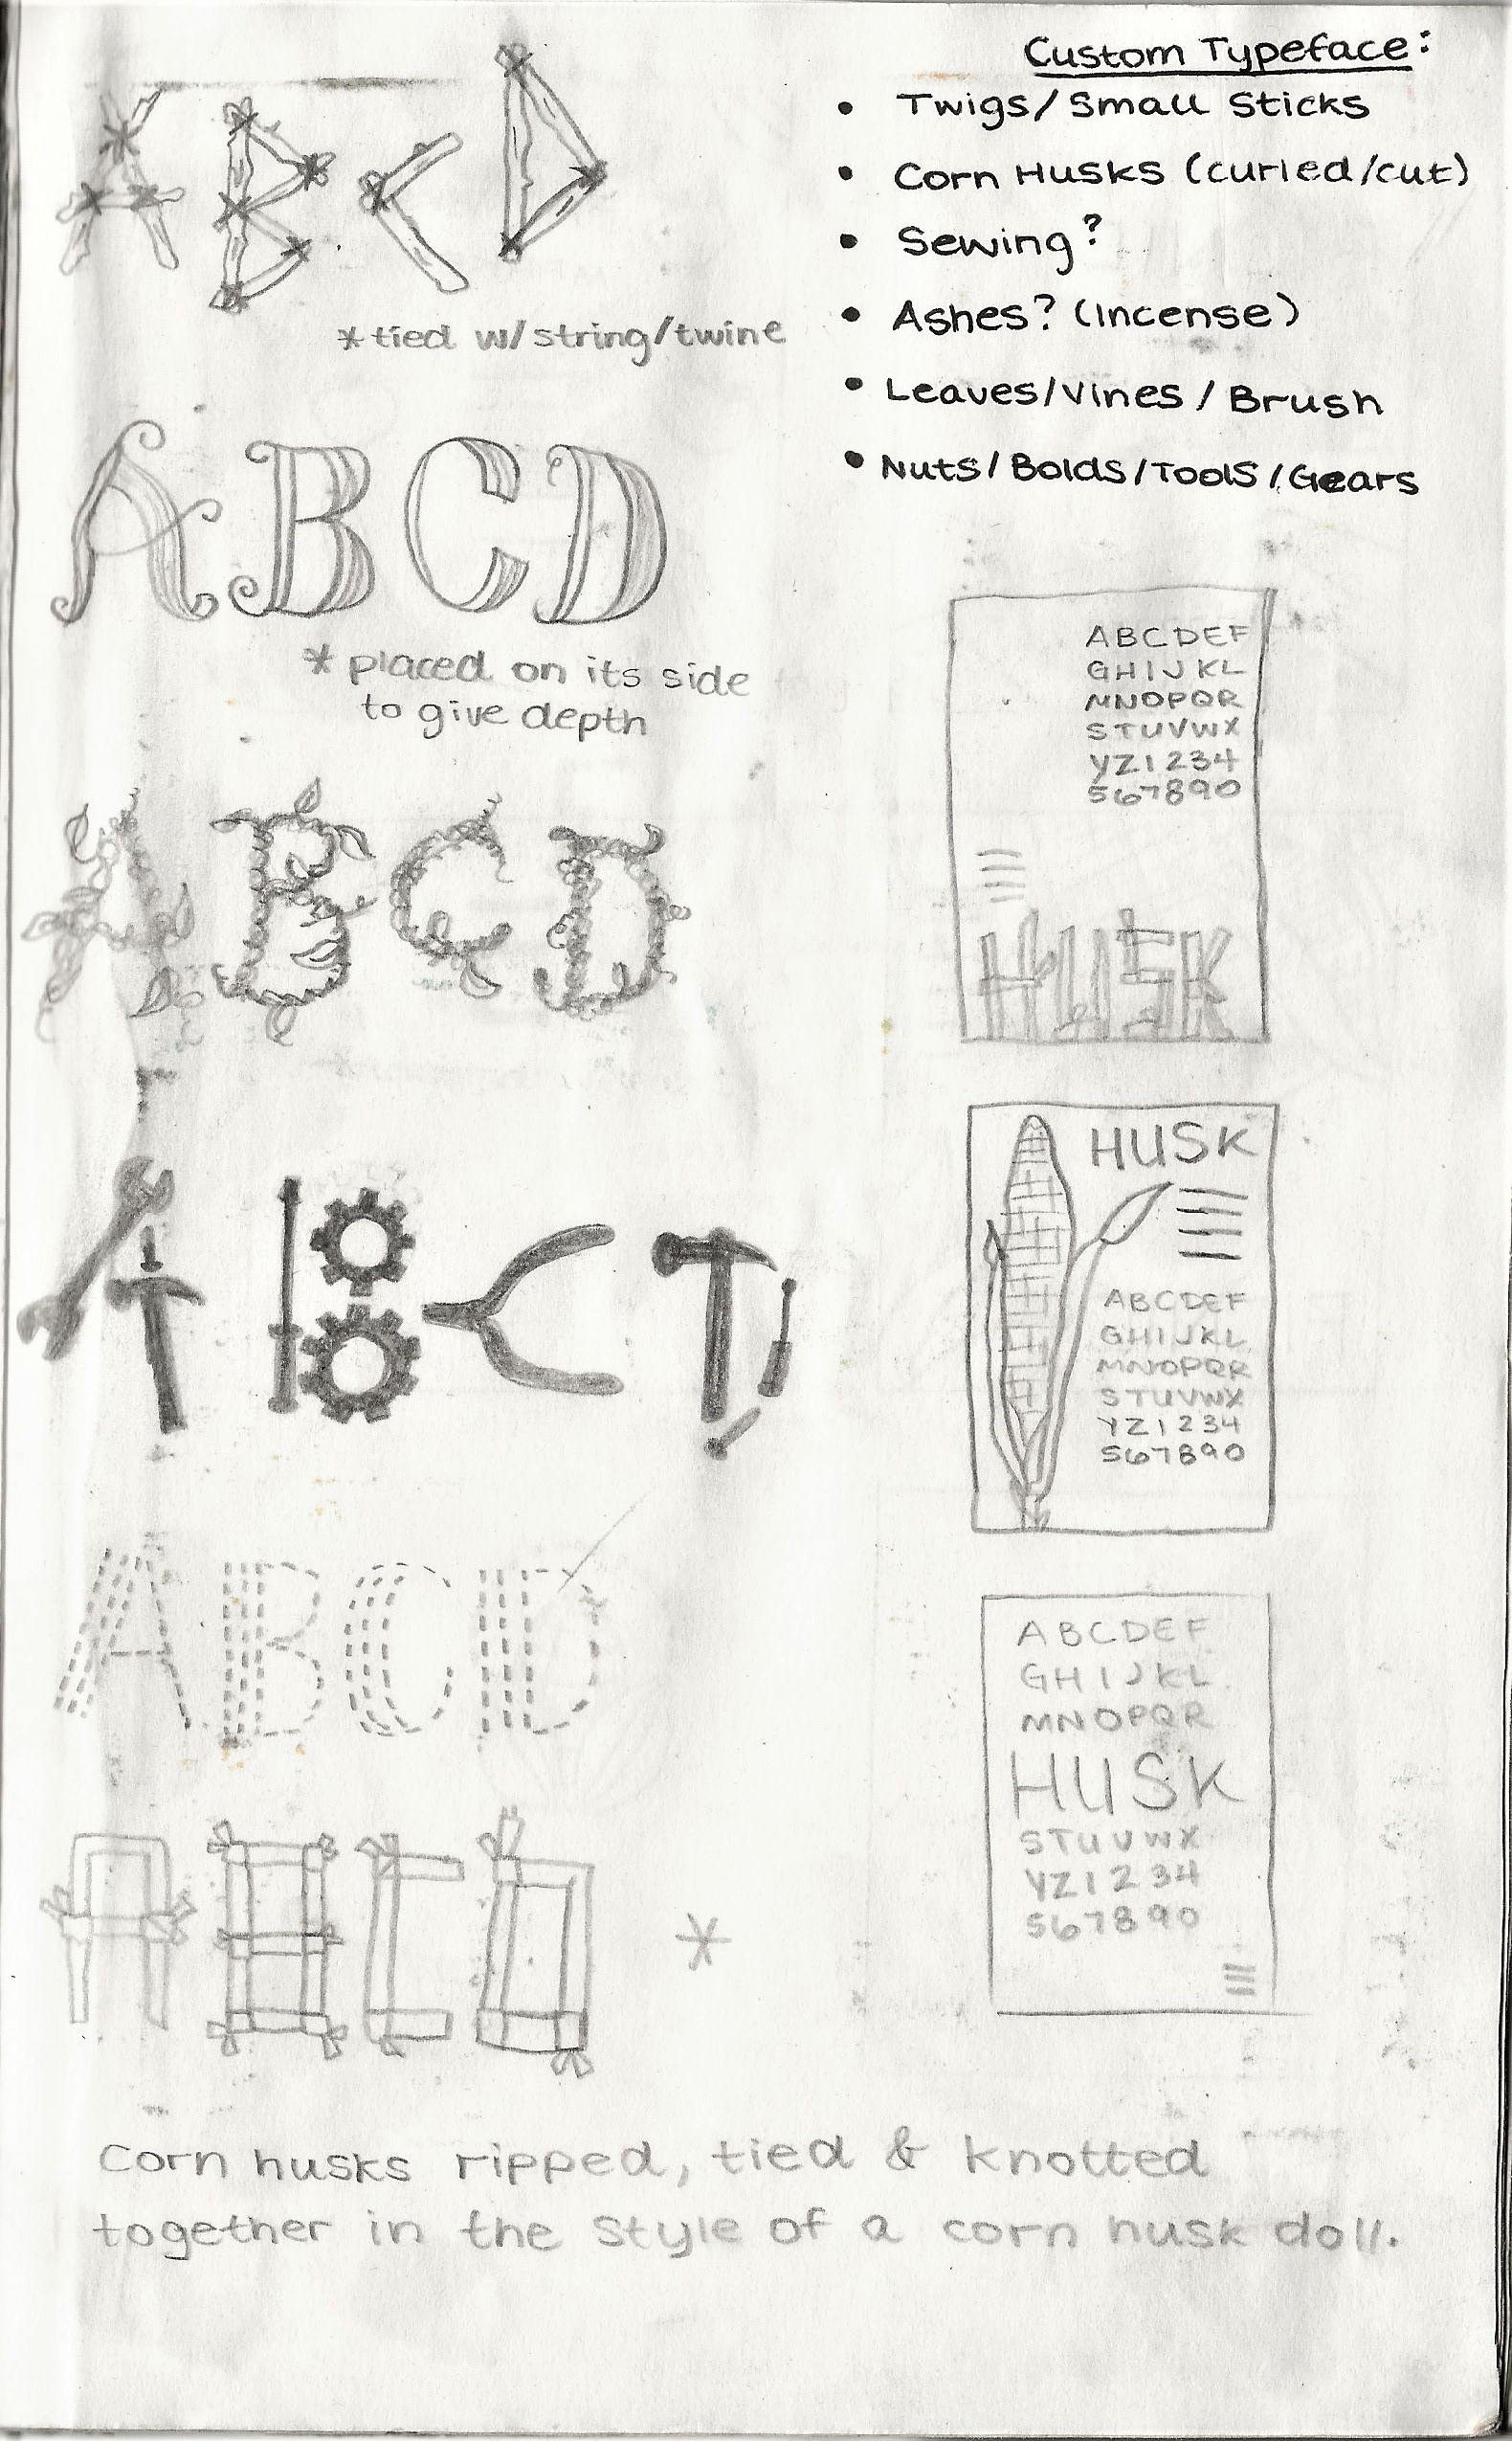 Custom Typeface:
• Twigs/Small Sticks
• Corn Husks (curled/cut)
• Sewing?
• Ashes? (Incense)
• Leaves/Vines/Brush
• Nuts/Bolds/Tools/Gears
ABCD
*tied w/string/twine
ABCD
* placed on its side
to give depth
ABCD
ABCD
ABCD
ABCD *
Corn husks ripped, tied & knotted
together in the style of a corn husk doll.
ABCDEF
GHIJKL
MNOPQR
STUVWX
YZ1234
567890
HUSK
HUSK
ABCDEF
GHIJKL
MNOPQR
STUVWX
YZ1234
567890
ABCDEF
GHIJKL
MNOPQR
HUSK
STUVWX
YZ1234
567890